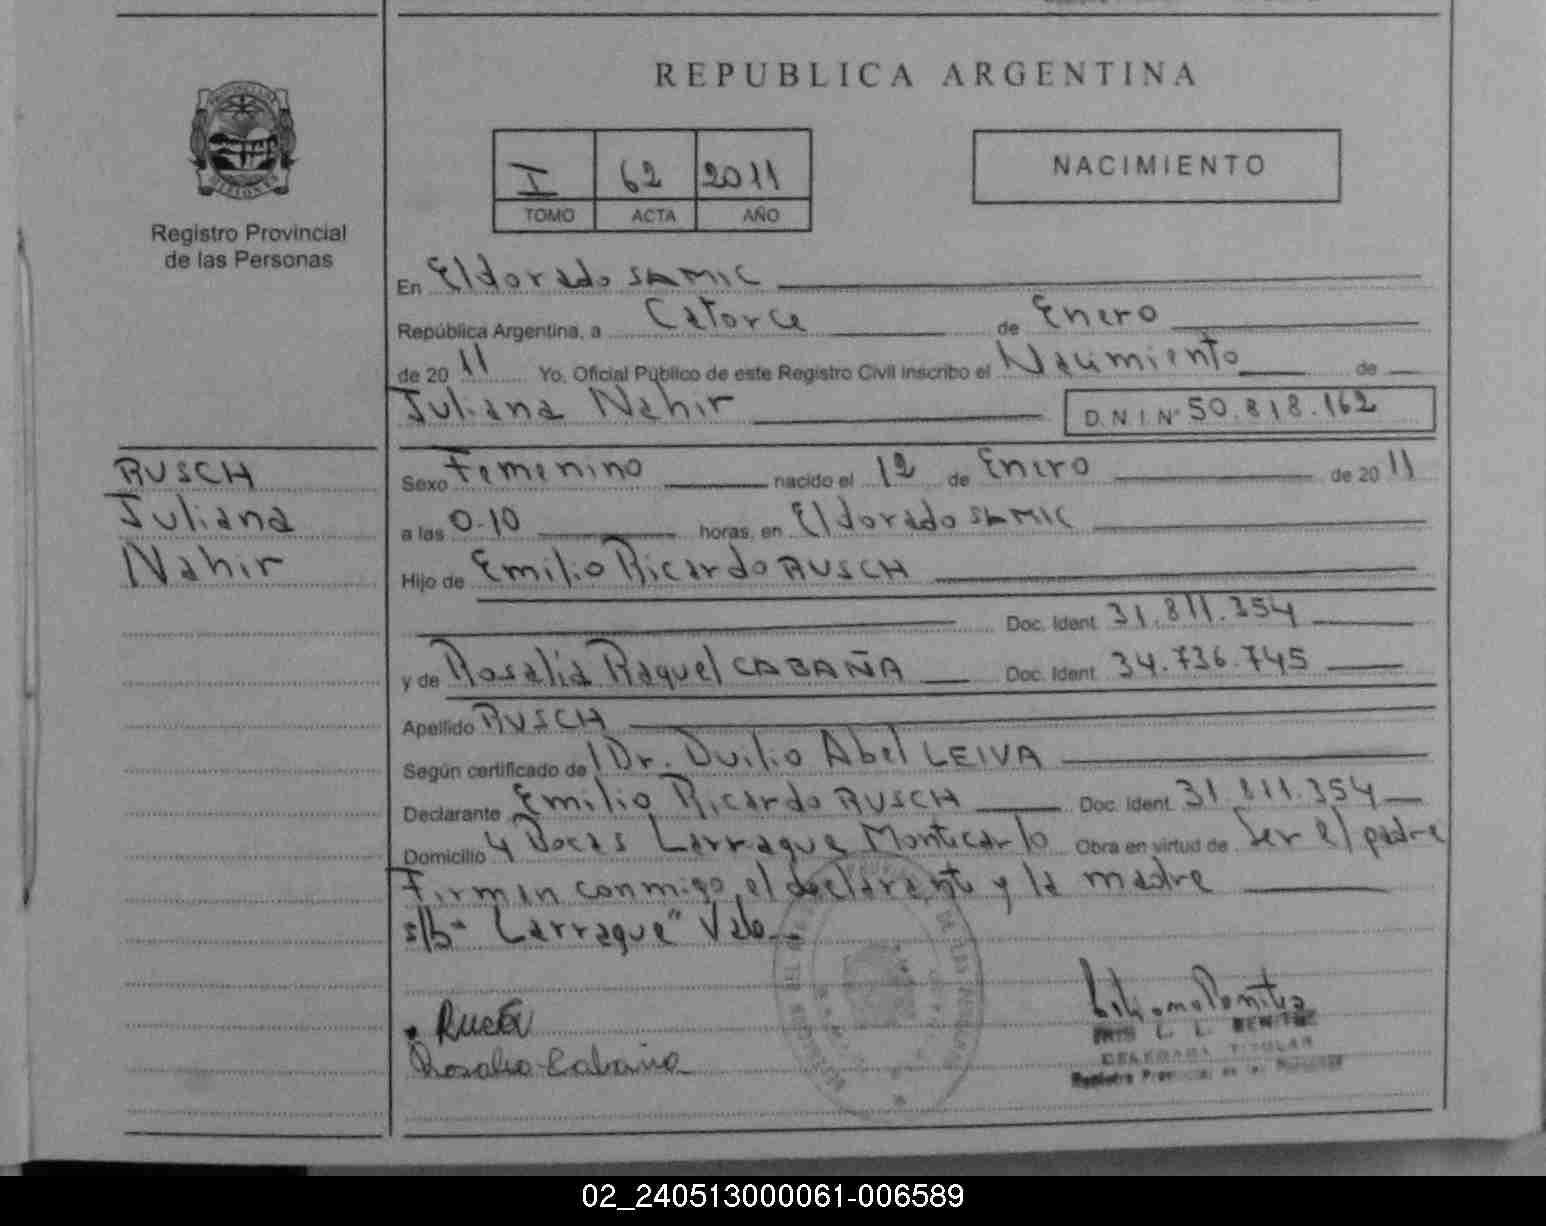 REPUBLICA ARGENTINA
I 62 2011
TOMO ACTA AÑO
NACIMIENTO
Registro Provincial
de las Personas
En Eldorado SAMIC
República Argentina, a Catorce de Enero
de 20 11 Yo, Oficial Público de este Registro Civil inscribo el Nacimiento de
Juliana Nahir D.N.I.Nº 50.818.162
RUSCH
Juliana
Nahir
Sexo Femenino nacido el 12 de Enero de 20 11
a las 0-10 horas, en Eldorado SAMIC
Hijo de Emilio Ricardo RUSCH
Doc. Ident. 31.811.354
y de Rosalia Raquel CABAÑA Doc. Ident. 34.736.745
Apellido RUSCH
Según certificado de Dr. Duilio Abel LEIVA
Declarante Emilio Ricardo RUSCH Doc. Ident. 31.811.354
Domicilio 4 Bocas Larraque Montecarlo Obra en virtud de Ser el padre
Firman conmigo, el declarante y la madre
s/b "Larraque" Vale.
Rosalia Cabaña
L. L. BENITEZ
DELEGADA TITULAR
Registro Provincial de las Personas
02_240513000061-006589